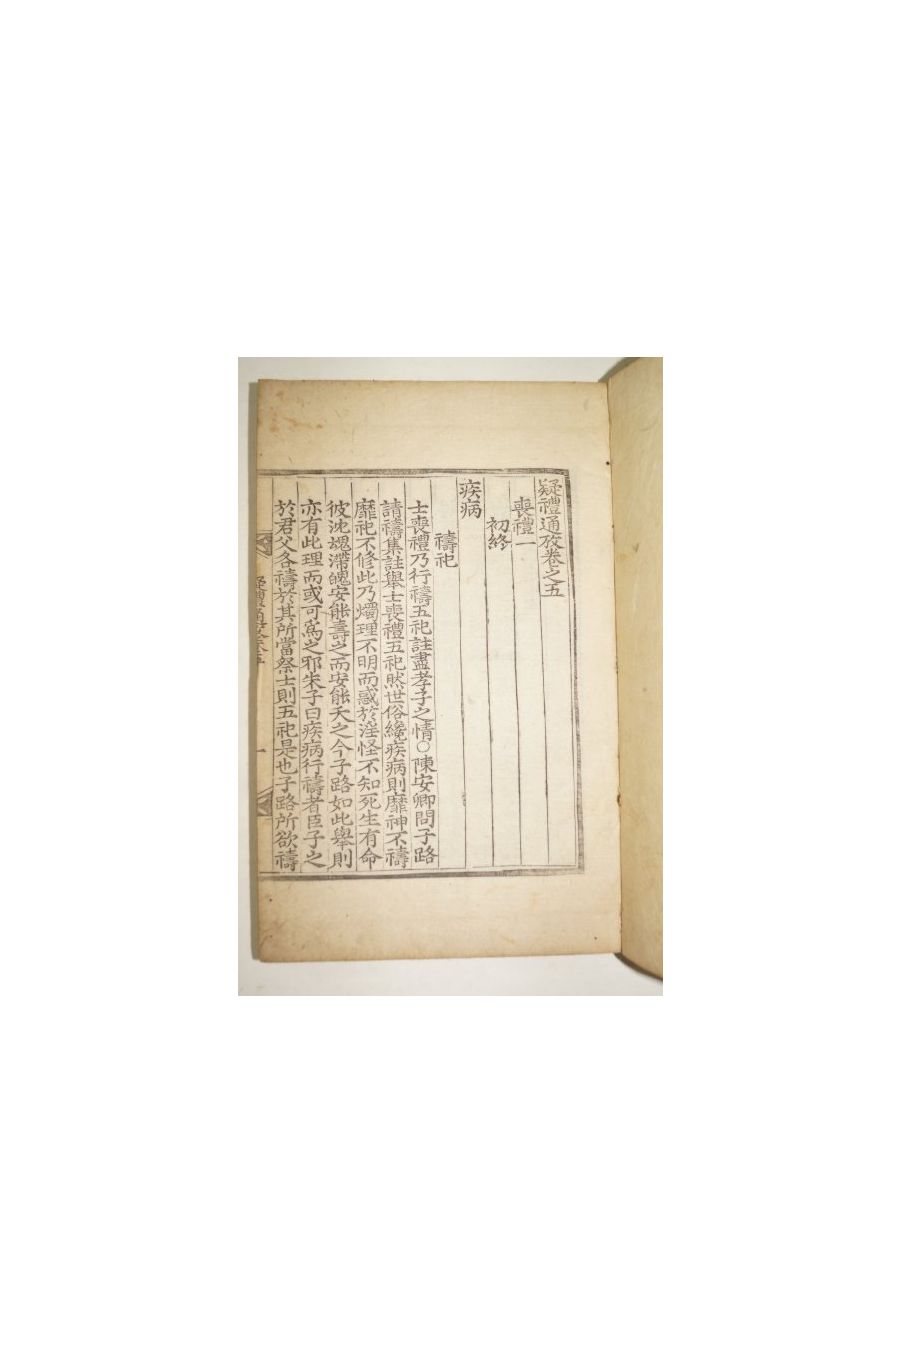 疑禮通攷卷之五
喪禮一
初終
疾病
禱祀
士喪禮乃行禱五祀註盡孝子之情○陳安卿問子路
請禱集註舉士喪禮五祀然世俗纔疾病則靡神不禱
靡祀不修此乃燭理不明而惑於淫怪不知死生有命
彼沈魂滯魄安能壽之而安能夭之今子路如此舉則
亦有此理而或可爲之邪朱子曰疾病行禱者臣子之
於君父各禱於其所當祭士則五祀是也子路所欲禱